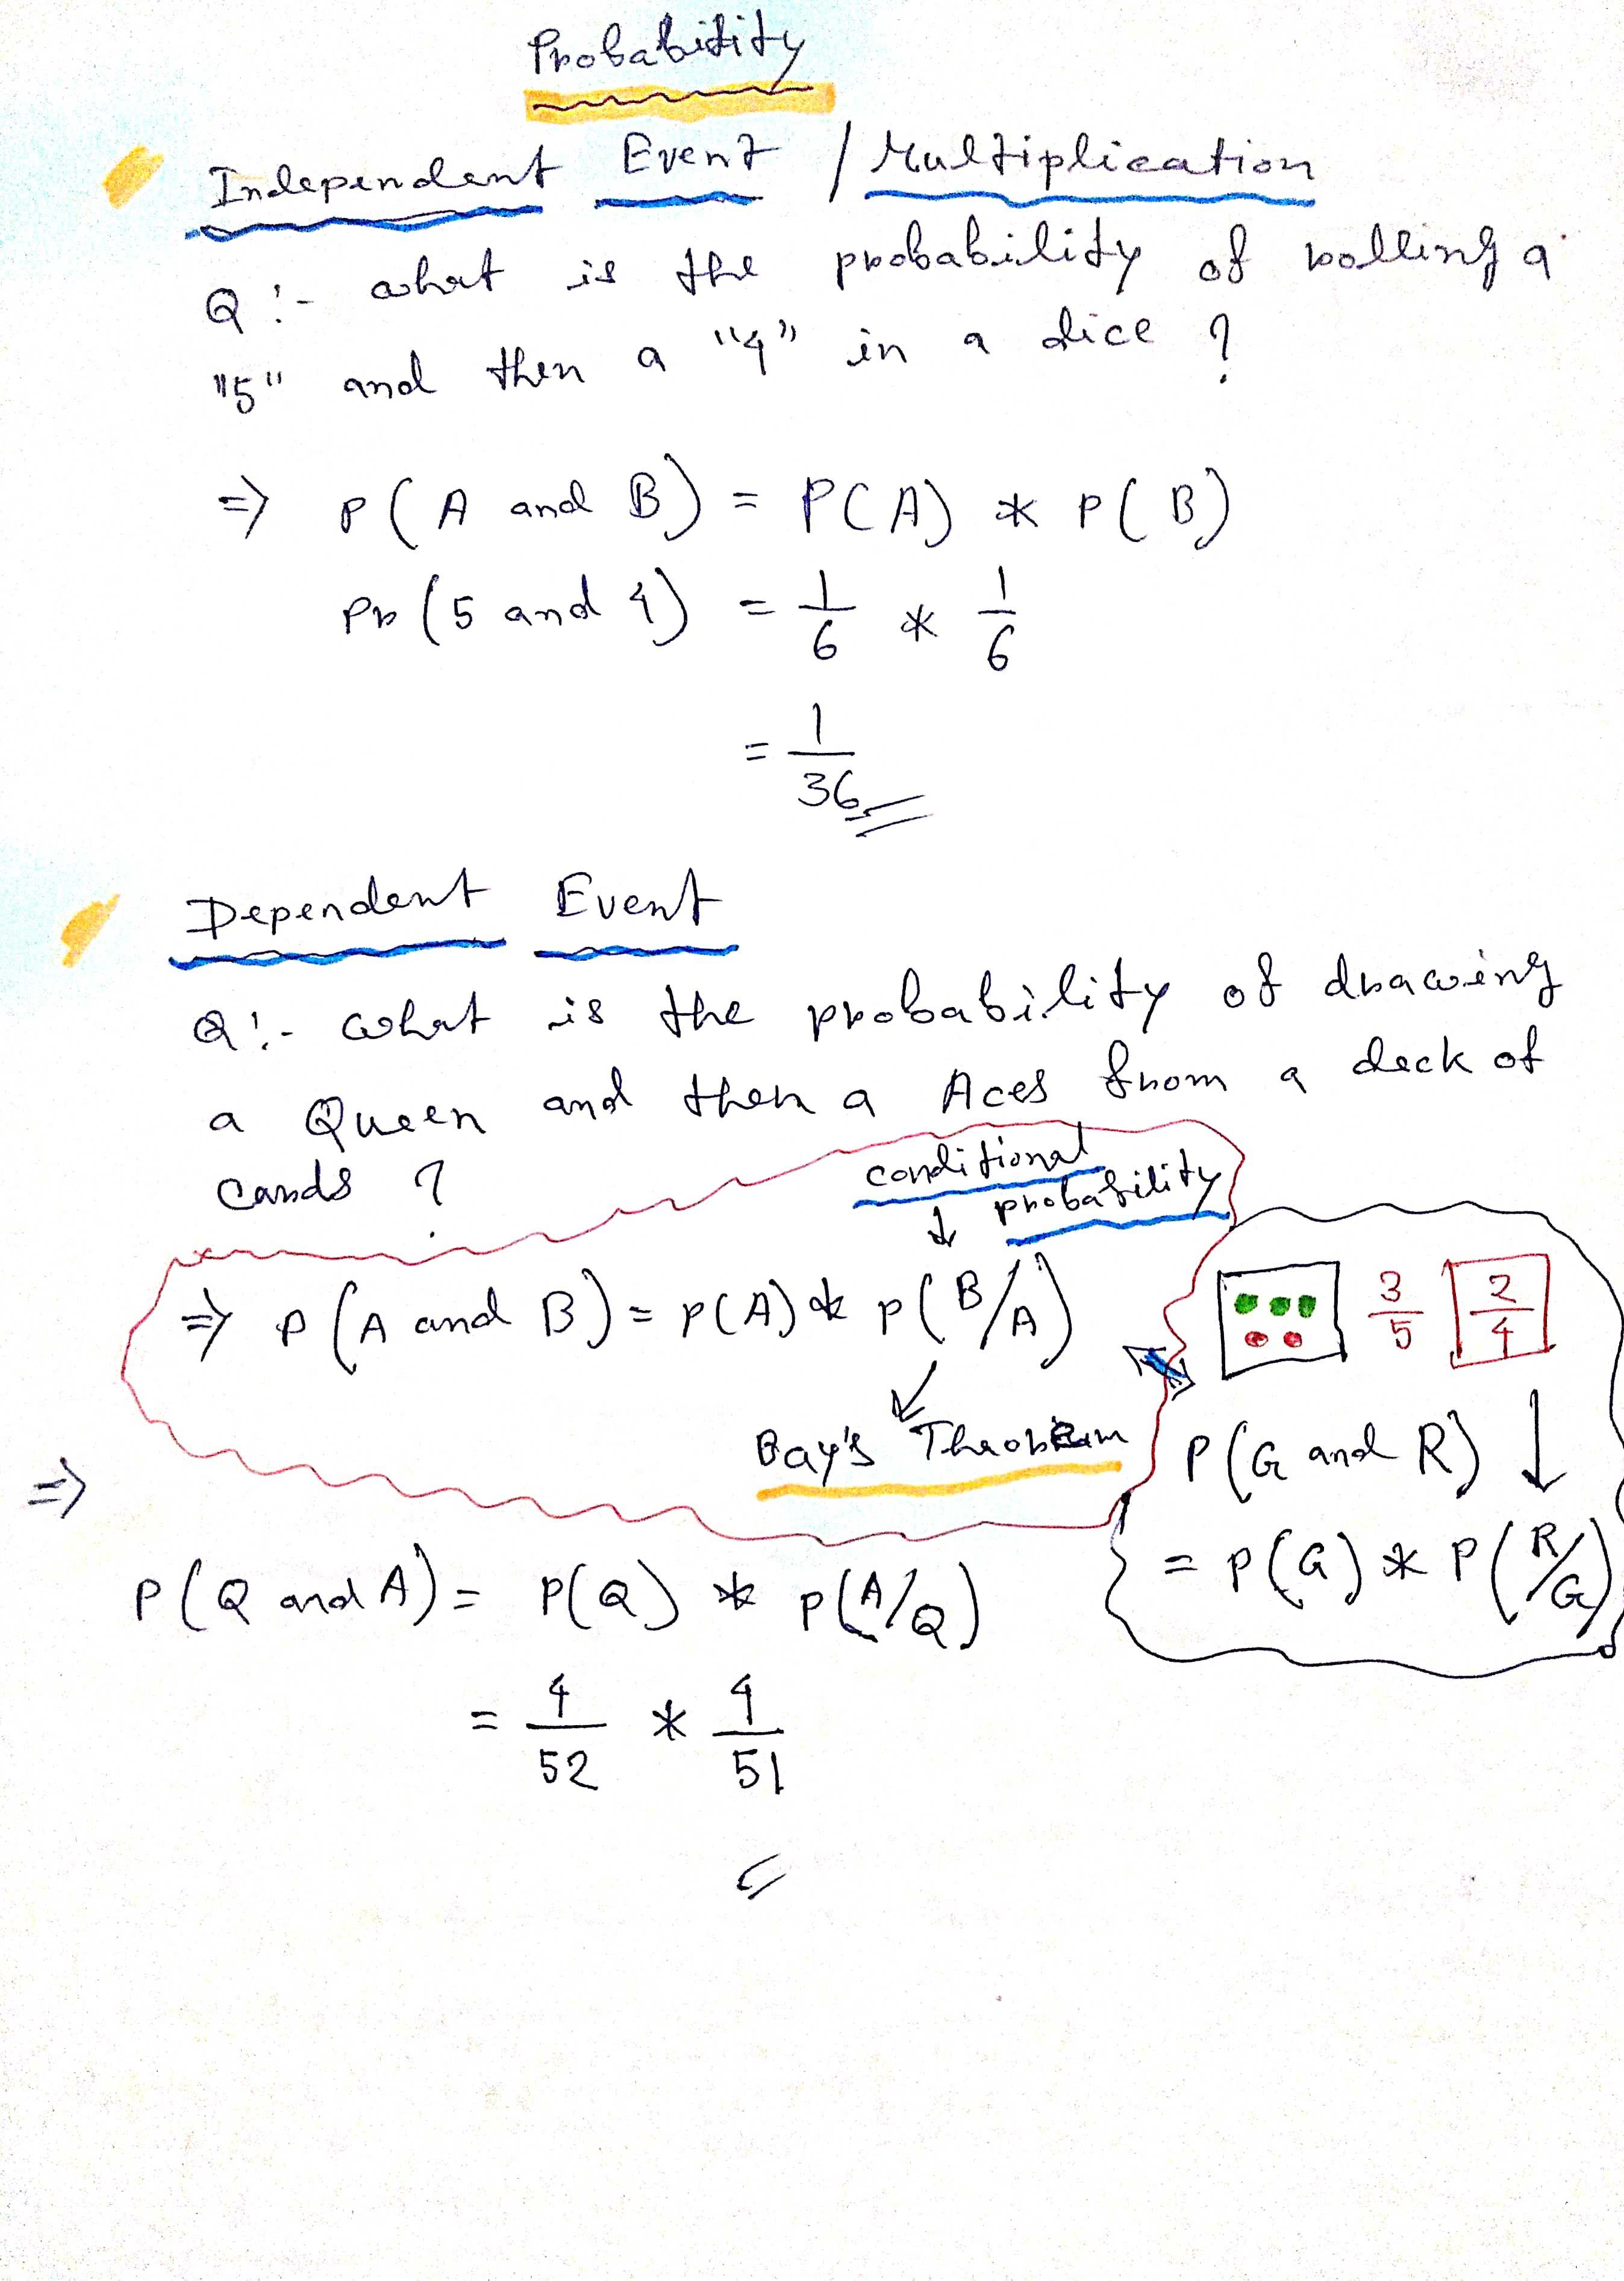 Probability
Independent Event / Multiplication
Q :- what is the probability of rolling a
"5" and then a "4" in a dice ?
=> P ( A and B ) = P(A) * P( B )
Pr ( 5 and 4 ) = 1/6 * 1/6
= 1/36
Dependent Event
Q :- what is the probability of drawing
a Queen and then a Aces from a deck of
cards ?
conditional
probability
↓
=> P ( A and B ) = P(A) * P ( B/A )
Bay's Theorem
3/5 2/4
P ( G and R ) ↓
= P(G) * P ( R/G )
=>
P ( Q and A ) = P(Q) * P(A/Q)
= 4/52 * 4/51